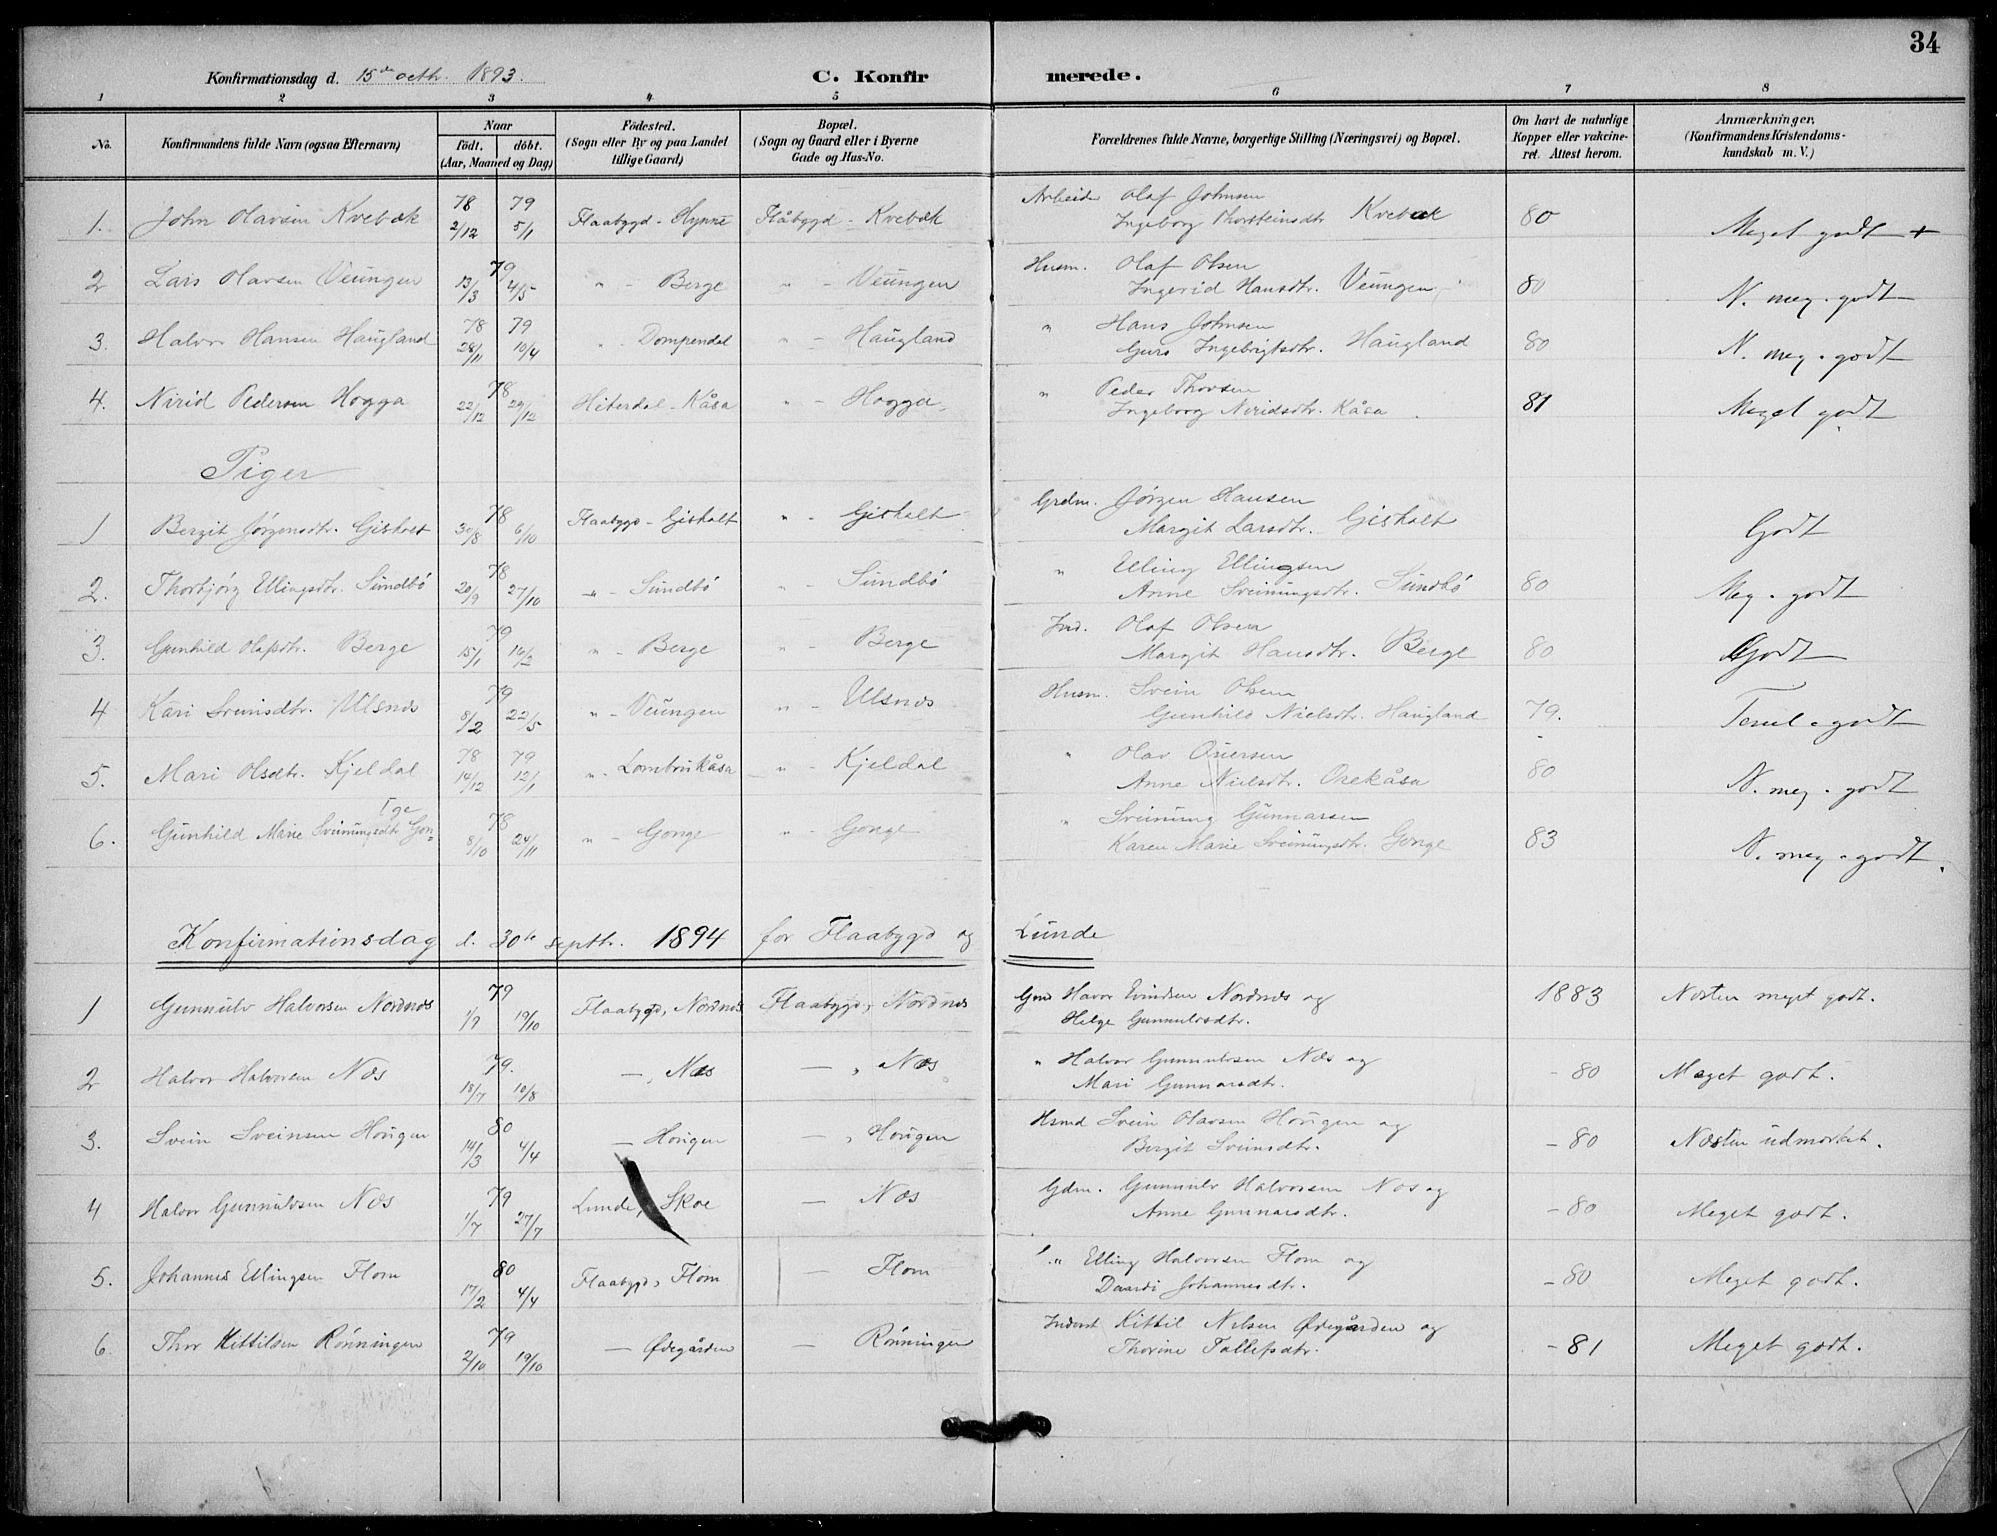 34
Konfirmationsdag d. 15de octbr. 1893. C. Konfirmerede.
1 2 3 4 5 6 7 8
No. Konfirmandens fulde Navn (ogsaa Efternavn) Naar födt. döbt. (Aar, Maaned og Dag) Födested. (Sogn eller By og paa Landet tillige Gaard) Bopæl. (Sogn og Gaard eller i Byerne Gade og Hus-No. Forældrenes fulde Navne, borgerlige Stilling (Næringsvei) og Bopæl. Om havt de naturlige Kopper eller vakcineret. Attest herom. Anmærkninger. (Konfirmandens Kristendomskundskab m. V.)
1. John Olavsen Kvebæk 78 2/12 79 5/1 Flaabygd - Hynne Flåbygd - Kvebæk Arbeider Olaf Johnsen Ingeborg Thorsteinsdtr Kvebæk 80 Meget godt +
2 Lars Olavsen Veungen 79 13/3 4/5 " - Berge " - Veungen Husm. Olaf Olsen Ingerid Hansdtr. Veungen 80 N. meg. godt
3. Halvor Hansen Haugland 78 28/11 79 10/4 " Dompendal " - Haugland " Hans Johnsen Guro Ingebrigtsdtr. Haugland 80 N. meg. godt
4. Nirid Pedersen Hogga 78 22/12 29/12 Hiterdal - Kåsa " - Hogga " Peder Thovsen Ingeborg Niridsdtr. Kåsa 81 Meget godt
Piger
1 Bergit Jørgensdtr. Gisholt 78 30/8 6/10 Flaabygd - Gisholt " - Gisholt Grdm. Jørgen Hansen Margit Larsdtr. Gisholt Godt
2. Thorbjörg Ellingsdtr. Sundbö 78 20/9 27/10 " - Sundbö " - Sundbö " Elling Ellingsen Anne Sveinungsdtr. Sundbö 80 Meg. godt
3. Gunhild Olafsdtr. Berge 79 15/1 16/2 " - Berge " - Berge Ind. Olaf Olsen Margit Hansdtr. Berge 80 Godt
4 Kari Sveinsdtr. Ulsnæs 79 8/2 22/5 " - Veungen " - Ulsnæs Husm. Svein Olsen Gunhild Nielsdtr. Haugland 79. Temel. godt
5. Mari Olsdtr. Kjeldal 78 14/12 79 12/1 " Lombrukåsa " - Kjeldal " Olav Anne Nielsdtr. Orekåsa 80 N. meg. godt
6. Gunhild Marie Sveinungsdtr Gon=ge 78 8/10 24/11 " - Gonge " - Gonge " Sveinung Gunnarsen Karen Marie Sveinungsdtr. Gonge 83 N. meg. godt.
Konfirmationsdag d. 30te septbr. 1894 for Flaabygd og Lunde
1 Gunnulv Halvorsen Nordnæs 79 1/9 19/10 Flaabygd, Nordnæs Flaabygd, Nordnæs Gmd Havor Evindsen Nordnæs og Helge Gunnulvsdtr. 1883 Næsten meget godt.
2 Halvor Halvorsen Næs 79. 18/7 10/8 —, Næs —, Næs " Halvor Gunnulvsen Næs og Mari Gunnarsdtr. - 80 Meget godt.
3. Svein Sveinsen Hougen 80 14/3 4/4 — Hougen —, Hougen Hsmd Svein Olavsen Hougen og Bergit Sveinsdtr. - 80 Næsten udmærket.
4 Halvor Gunnulvsen Næs 79 1/7 27/7 Lunde, Skoe — Næs Gdm. Gunnulv Halvorsen Næs og Anne Gunnarsdtr. - 80 Meget godt.
5. Johannes Ellingsen Flom 80 17/2 4/4 Flaabygd, Flom — Flom " Elling Halvorsen Flom og Daardi Johannesdtr. - 80 Meget godt.
6. Thor Kittilsen Rönningen 79 2/10 19/10 — Ødegården — Rönningen Inderst Kittil Nilsen Ødegården og Thorine Tallefsdtr. - 81 Meget godt.